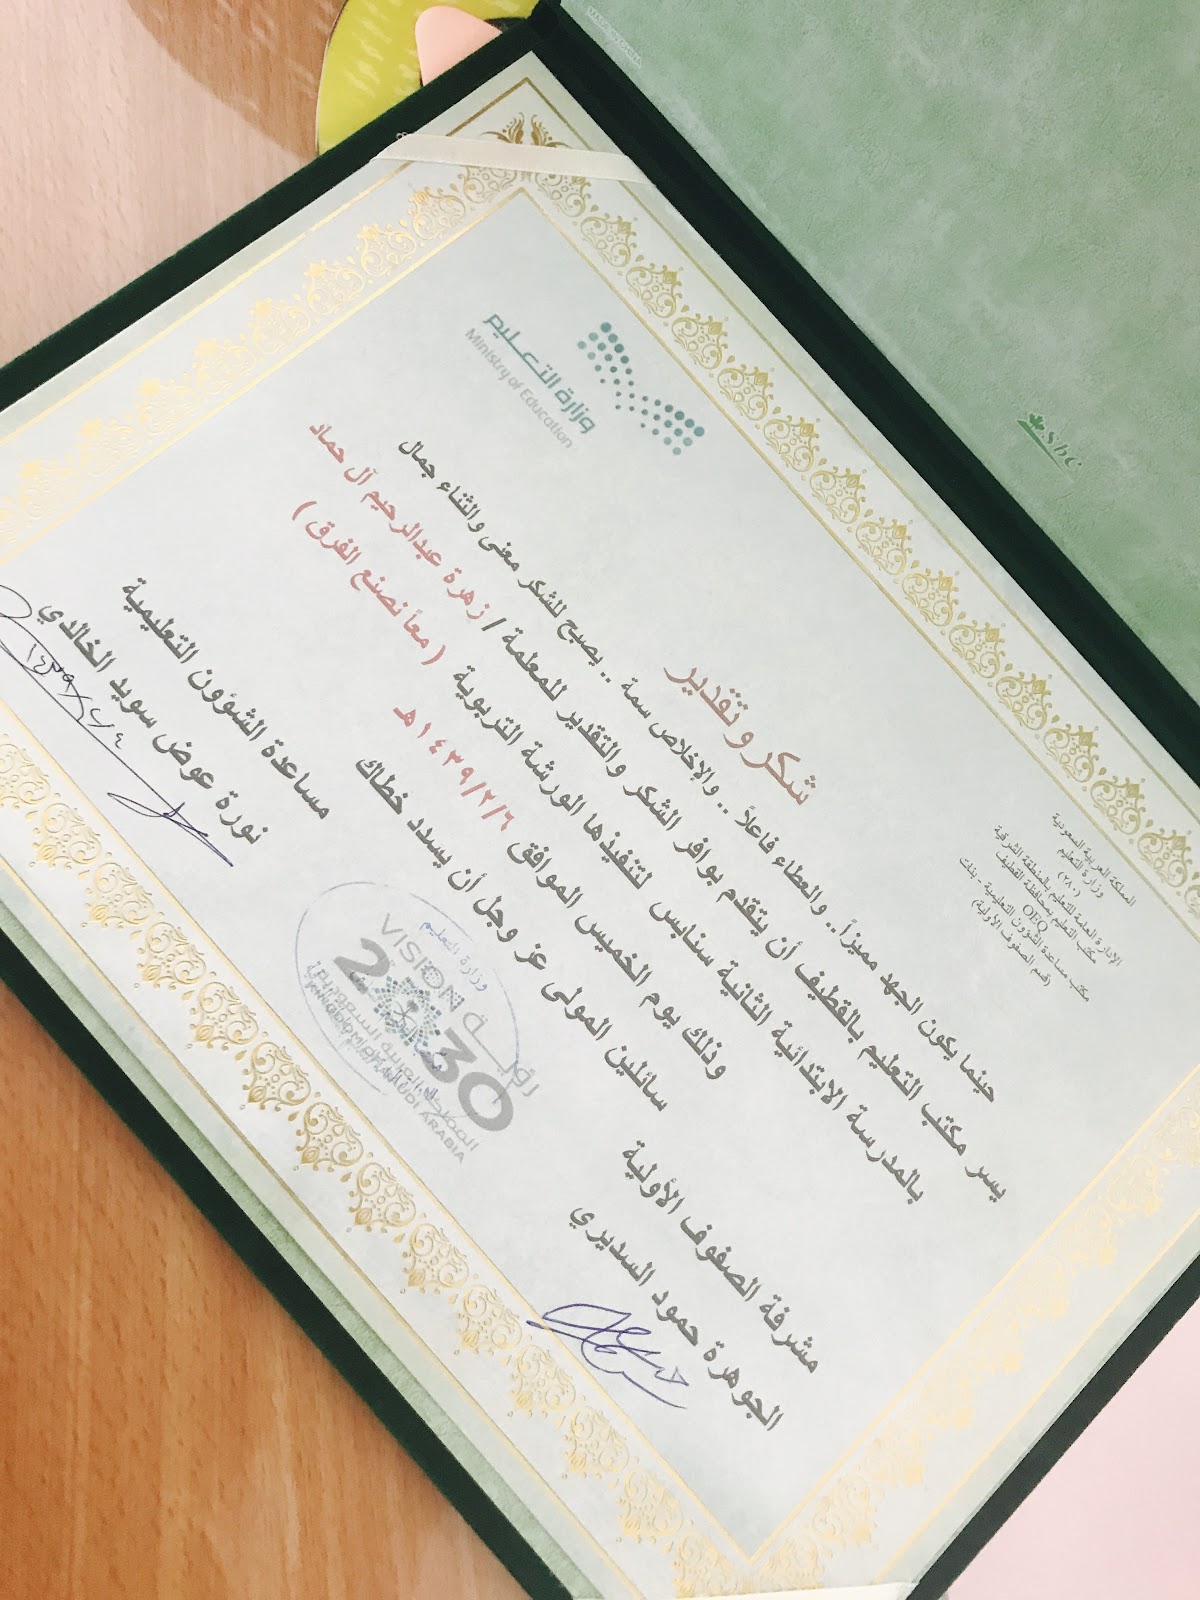 المملكة العربية السعودية
وزارة التعليم
(٢٨٠)
الإدارة العامة للتعليم بالمنطقة الشرقية
مكتب التعليم بمحافظة القطيف
OEQ
مكتب مساعدة الشؤون التعليمية - بنات
(قسم الصفوف الأولية)
وزارة التعليم
Ministry of Education
شكر و تقدير
حينما يكون الجهد مميزاً .. والعطاء فاعلاً .. والإخلاص سمة .. يصبح للشكر معنى والثناء جمال
يسر مكتب التعليم بالقطيف أن يتقدم بوافر الشكر والتقدير للمعلمة / زهرة عبدالرحيم آل حماد
بالمدرسة الابتدائية الثانية سنابس لتنفيذها الورشة التربوية ( معاً نصنع الفرق )
وذلك يوم الخميس الموافق ١٤٣٩/٢/٦هـ
سائلين المولى عز وجل أن يسدد خطاك
مشرفة الصفوف الأولية
الجوهرة حمود السديري
مساعدة الشؤون التعليمية
نورة عوض سويد الخالدي
وزارة التعليم
VISION رؤيــة
2030
المملكة العربية السعودية
KINGDOM OF SAUDI ARABIA
Sbc